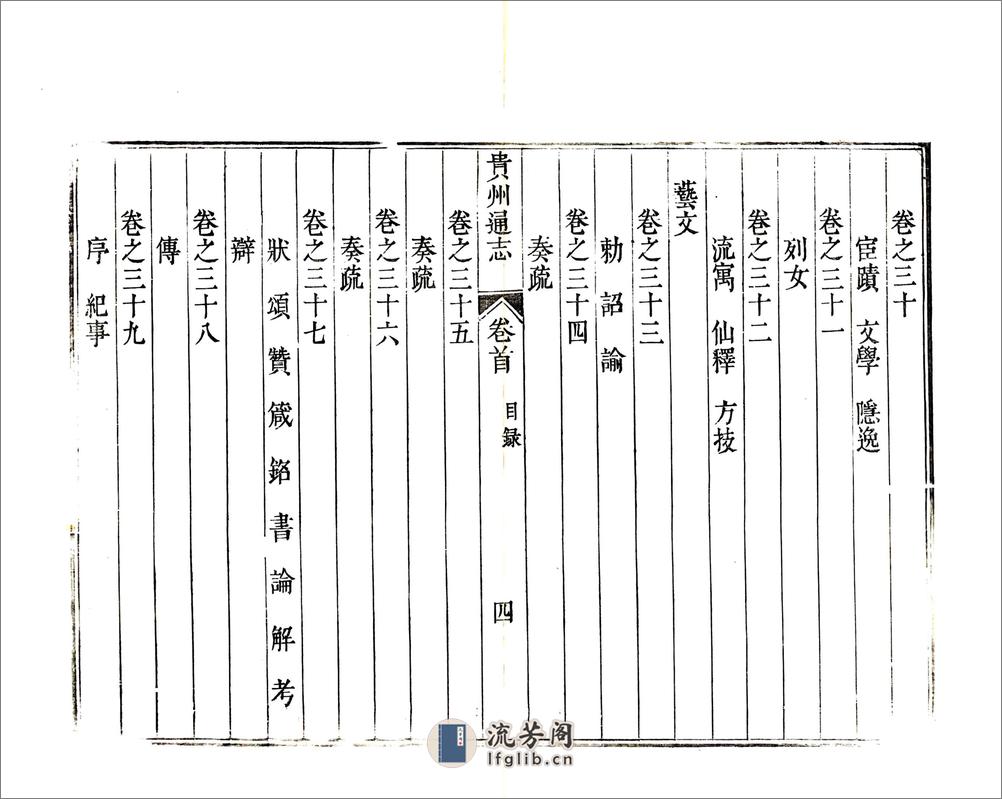 卷之三十
宦蹟 文學 隱逸
卷之三十一
列女
卷之三十二
流寓 仙釋 方技
藝文
卷之三十三
勅 詔 諭
卷之三十四
奏疏
貴州通志 卷首 目録 四
卷之三十五
奏疏
卷之三十六
奏疏
卷之三十七
狀 頌 贊 箴 銘 書 論 解 考
辯
卷之三十八
傳
卷之三十九
序 紀事
流芳阁
lfglib.cn